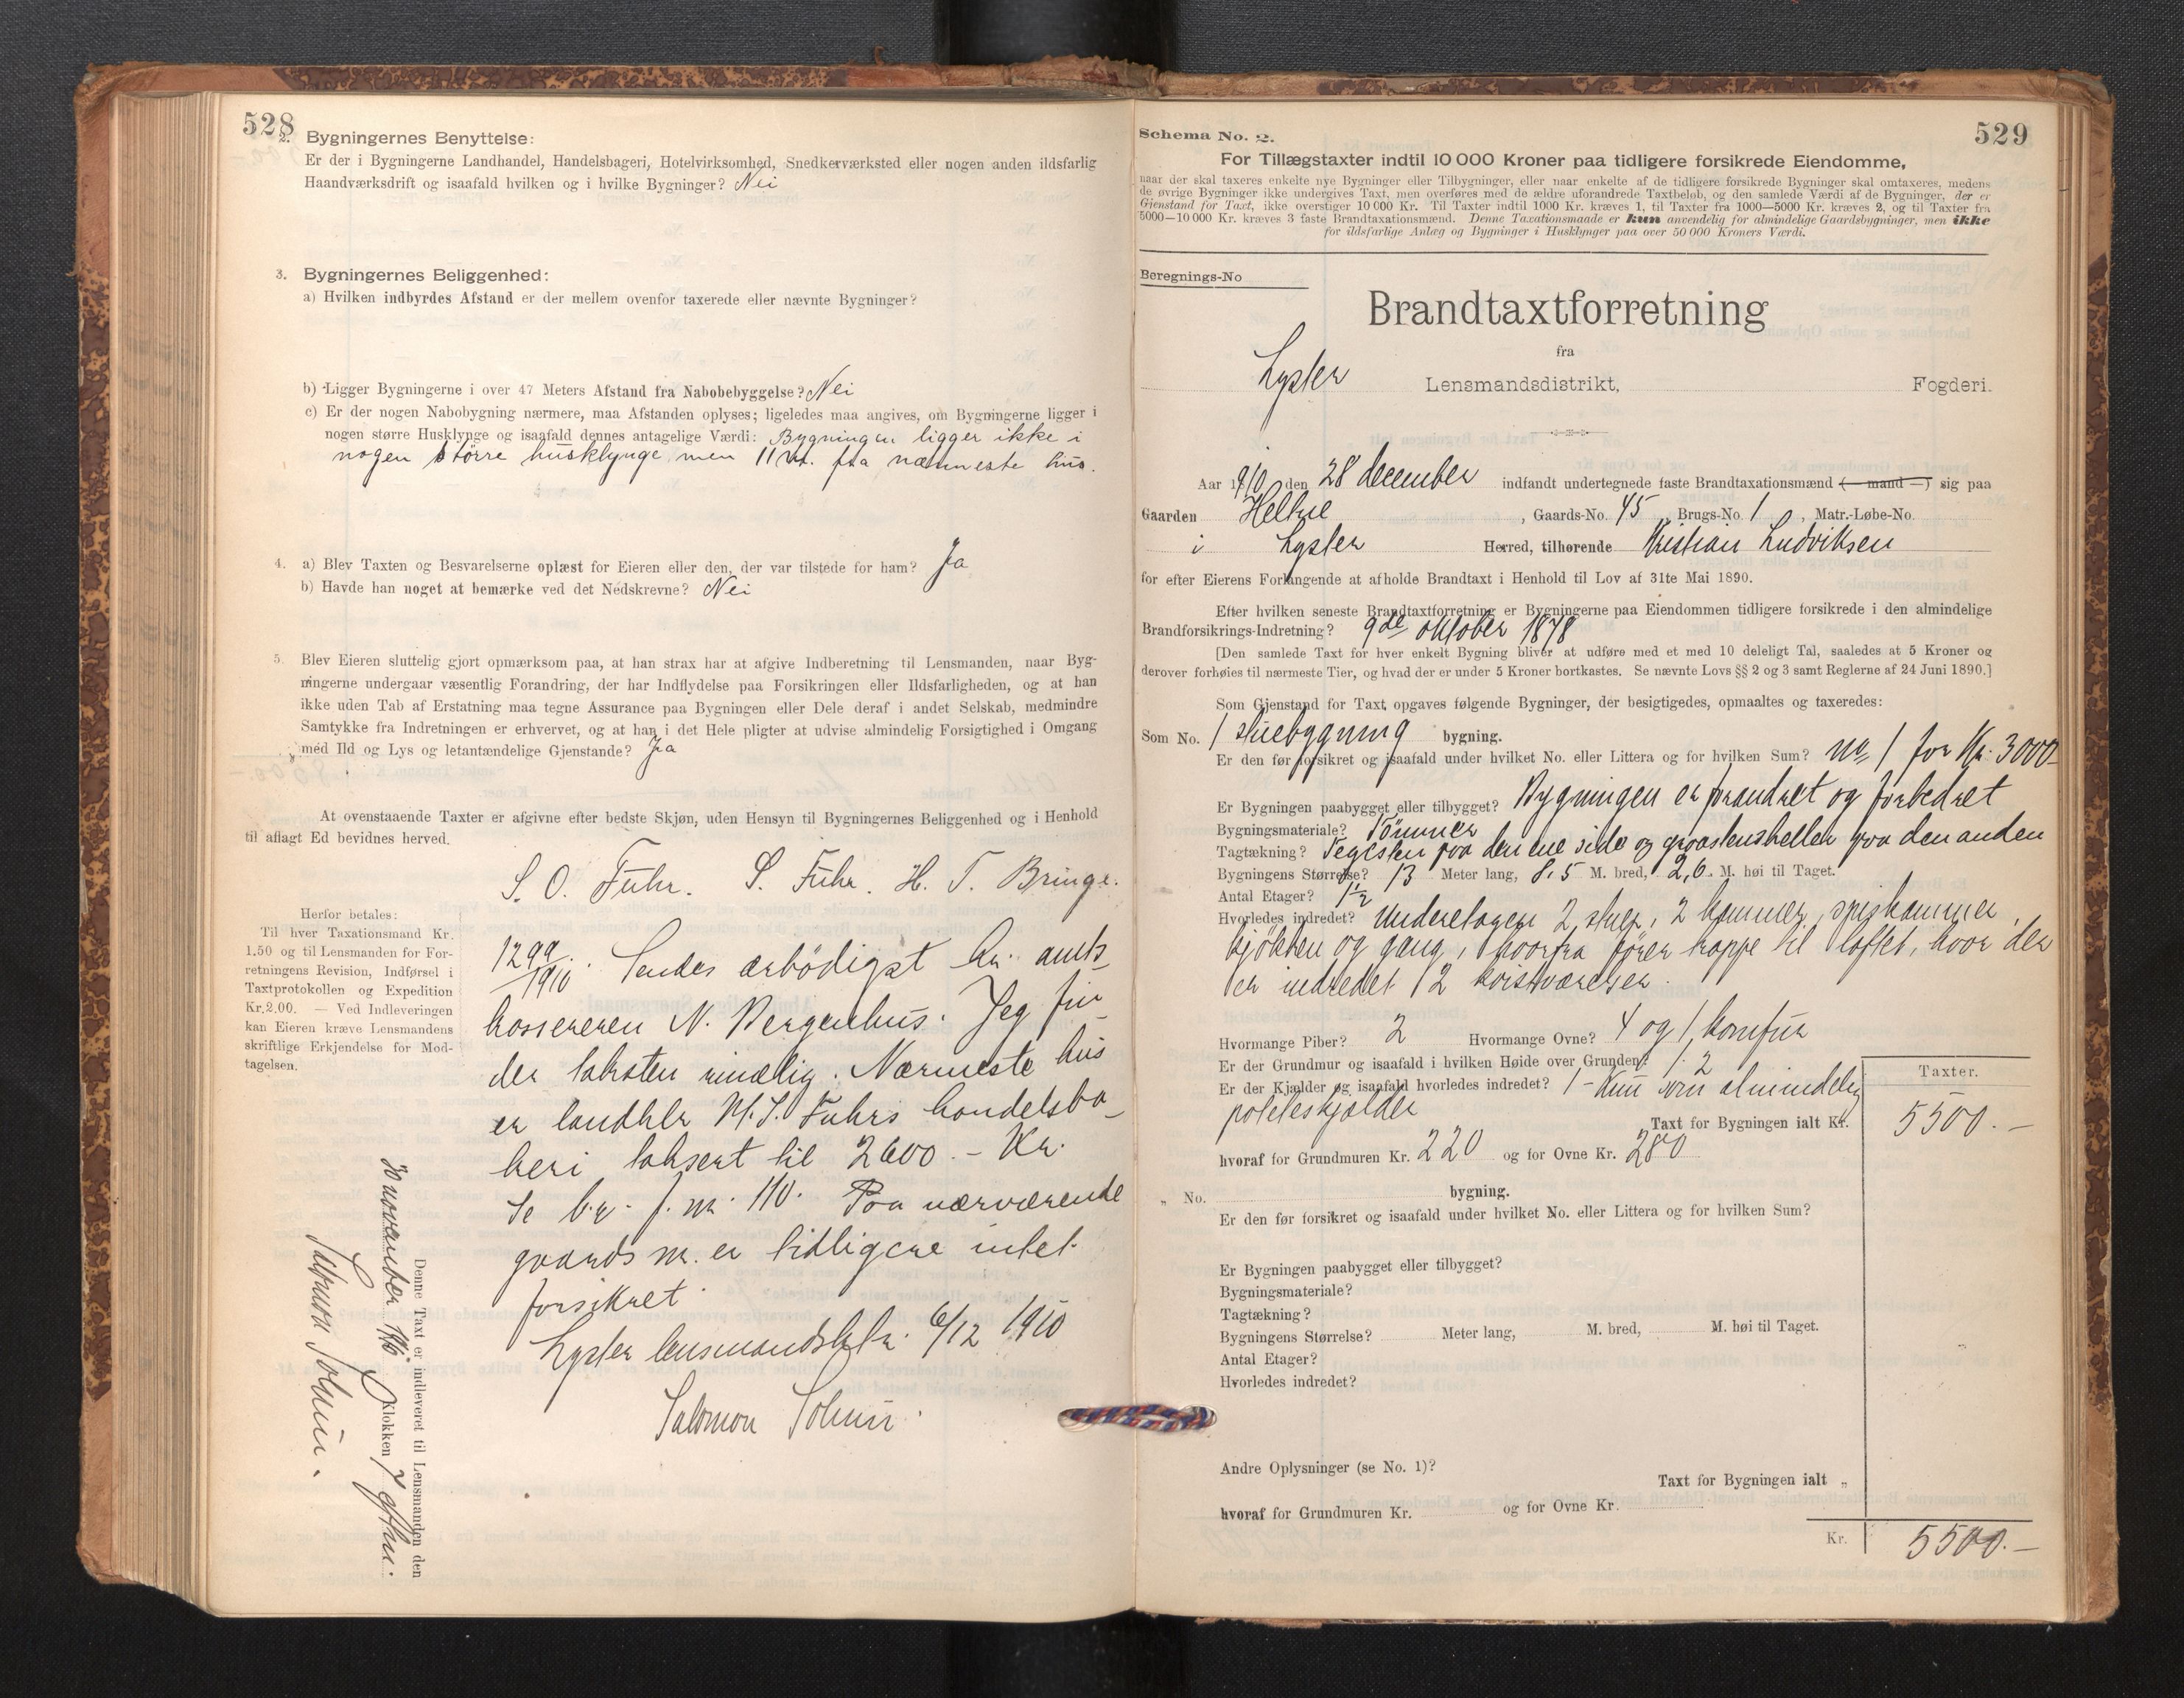 528
2. Bygningernes Benyttelse:
Er der i Bygningerne Landhandel, Handelsbageri, Hotelvirksomhed, Snedkerværksted eller nogen anden ildsfarlig
Haandværksdrift og isaafald hvilken og i hvilke Bygninger? Nei
3. Bygningernes Beliggenhed:
a) Hvilken indbyrdes Afstand er der mellem ovenfor taxerede eller nævnte Bygninger?
b) Ligger Bygningerne i over 47 Meters Afstand fra Nabobebyggelse? Nei
c) Er der nogen Nabobygning nærmere, maa Afstanden oplyses; ligeledes maa angives, om Bygningerne ligger i
nogen større Husklynge og isaafald dennes antagelige Værdi: Bygningen ligger ikke i
nogen större husklynge men 11 m. fra nærmeste hus.
4. a) Blev Taxten og Besvarelserne oplæst for Eieren eller den, der var tilstede for ham? Ja
b) Havde han noget at bemærke ved det Nedskrevne? Nei
5. Blev Eieren sluttelig gjort opmærksom paa, at han strax har at afgive Indberetning til Lensmanden, naar Byg-
ningerne undergaar væsentlig Forandring, der har Indflydelse paa Forsikringen eller Ildsfarligheden, og at han
ikke uden Tab af Erstatning maa tegne Assurance paa Bygningen eller Dele deraf i andet Selskab, medmindre
Samtykke fra Indretningen er erhvervet, og at han i det Hele pligter at udvise almindelig Forsigtighed i Omgang
med Ild og Lys og letantændelige Gjenstande? Ja
At ovenstaaende Taxter er afgivne efter bedste Skjøn, uden Hensyn til Bygningernes Beliggenhed og i Henhold
til aflagt Ed bevidnes herved.
S. O. Fuhr. S. Fuhr. H. T. Bringe.
Herfor betales:
Til hver Taxationsmand Kr.
1.50 og til Lensmanden for For-
retningens Revision, Indførsel i
Taxtprotokollen og Expedition
Kr. 2.00. — Ved Indleveringen
kan Eieren kræve Lensmandens
skriftlige Erkjendelse for Mod-
tagelsen.
1299/1910. Sendes ærbödigst hr. amts-
kassereren N. Bergenhus. Jeg fin-
der taksten rimelig. Nærmeste hus
er landhlr M. S. Fuhrs handelsba-
keri taksert til 2600.- Kr.
Se br. f. nr. 110. Paa nærværende
gaards nr. er tidligere intet
forsikret.
Lyster lensmandsbestr. 6/12 1910
Salomon Solum.
Denne Taxt er indleveret til Lensmanden den
30 november 1910. Klokken 7 efm.
Salomon Solum.
Schema No. 2.
529
For Tillægstaxter indtil 10 000 Kroner paa tidligere forsikrede Eiendomme,
naar der skal taxeres enkelte nye Bygninger eller Tilbygninger, eller naar enkelte af de tidligere forsikrede Bygninger skal omtaxeres, medens
de øvrige Bygninger ikke undergives Taxt, men overføres med de ældre uforandrede Taxtbeløb, og den samlede Værdi af de Bygninger, der er
Gjenstand for Taxt, ikke overstiger 10 000 Kr. Til Taxter indtil 1000 Kr. kræves 1, til Taxter fra 1000—5000 Kr. kræves 2, og til Taxter fra
5000—10 000 Kr. kræves 3 faste Brandtaxationsmænd. Denne Taxationsmaade er kun anvendelig for almindelige Gaardsbygninger, men ikke
for ildsfarlige Anlæg og Bygninger i Husklynger paa over 50 000 Kroners Værdi.
Beregnings-No
Brandtaxtforretning
fra
Lyster Lensmandsdistrikt, Fogderi.
Aar 1910 den 28 december indfandt undertegnede faste Brandtaxationsmænd (— mand —) sig paa
Gaarden Heltne, Gaards-No. 45, Brugs-No. 1, Matr.-Løbe-No.
i Lyster Herred, tilhørende Kristian Ludviksen
for efter Eierens Forlangende at afholde Brandtaxt i Henhold til Lov af 31te Mai 1890.
Efter hvilken seneste Brandtaxtforretning er Bygningerne paa Eiendommen tidligere forsikrede i den almindelige
Brandforsikrings-Indretning? 9de oktober 1878
[Den samlede Taxt for hver enkelt Bygning bliver at udføre med et med 10 deleligt Tal, saaledes at 5 Kroner og
derover forhøies til nærmeste Tier, og hvad der er under 5 Kroner bortkastes. Se nævnte Lovs §§ 2 og 3 samt Reglerne af 24 Juni 1890.]
Som Gjenstand for Taxt opgaves følgende Bygninger, der besigtigedes, opmaaltes og taxeredes:
Som No. 1 stuebygning bygning.
Er den før forsikret og isaafald under hvilket No. eller Littera og for hvilken Sum? no 1 for Kr. 3000-
Er Bygningen paabygget eller tilbygget? Bygningen er forandret og forbedret
Bygningsmateriale? Tömmer
Tagtækning? Teglsten paa den ene side og graastensheller paa den anden
Bygningens Størrelse? 13 Meter lang, 8,5 M. bred, 2,6 M. høi til Taget.
Antal Etager? 1 1/2
Hvorledes indredet? Underetagen 2 stuer, 2 kammer, spiskammer,
kjökken og gang, hvorfra förer trappe til loftet, hvor der
er indredet 2 kvistværelser.
Hvormange Piber? 2 Hvormange Ovne? 4 og 1 komfur
Er der Grundmur og isaafald i hvilken Høide over Grunden? 1.2
Er der Kjælder og isaafald hvorledes indredet? 1 - Kun som almindelig
poteteskjælder
Taxter.
Taxt for Bygningen ialt Kr. 5500.—
hvoraf for Grundmuren Kr. 220 og for Ovne Kr. 280
„ No. bygning.
Er den før forsikret og isaafald under hvilket No. eller Littera og for hvilken Sum?
Er Bygningen paabygget eller tilbygget?
Bygningsmateriale?
Tagtækning?
Bygningens Størrelse? Meter lang, M. bred, M. høi til Taget.
Antal Etager?
Hvorledes indredet?
Andre Oplysninger (se No. 1)?
Taxt for Bygningen ialt „
hvoraf for Grundmuren Kr. og for Ovne Kr.
Kr. 5500.—